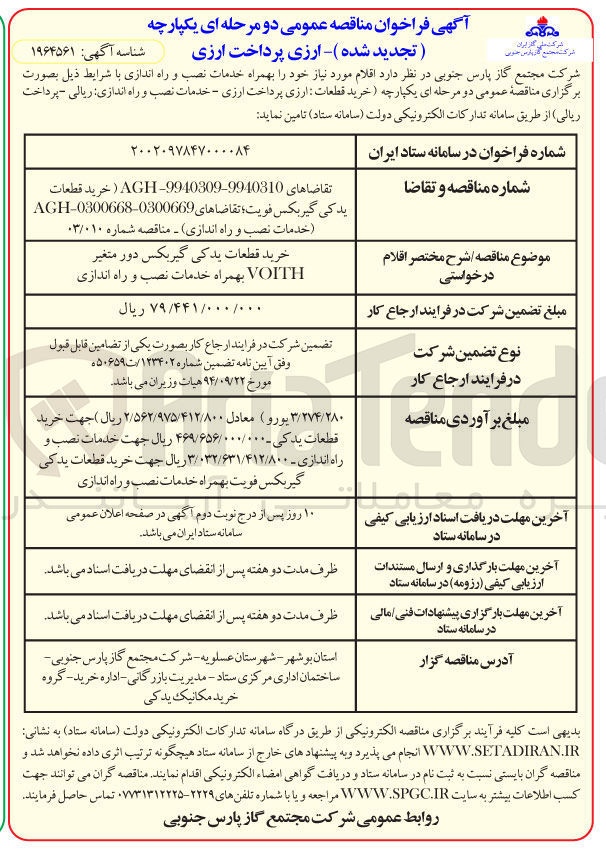 آگهی فراخوان مناقصه عمومی دو مرحله ای یکپارچه
( تجدید شده )- ارزی پرداخت ارزی
شناسه آگهی: ۱۹۶۴۵۶۱
شرکت ملی گاز ایران
شرکت مجتمع گاز پارس جنوبی
شرکت مجتمع گاز پارس جنوبی در نظر دارد اقلام مورد نیاز خود را بهمراه خدمات نصب و راه اندازی با شرایط ذیل بصورت
برگزاری مناقصه عمومی دو مرحله ای یکپارچه ( خرید قطعات : ارزی پرداخت ارزی - خدمات نصب و راه اندازی: ریالی -پرداخت
ریالی) از طریق سامانه تدارکات الکترونیکی دولت (سامانه ستاد) تامین نماید:
شماره فراخوان در سامانه ستاد ایران
۲۰۰۲۰۹۷۸۴۷۰۰۰۰۸۴
شماره مناقصه و تقاضا
تقاضاهای AGH -9940309-9940310 ( خرید قطعات
یدکی گیربکس فویت؛ تقاضاهای AGH-0300668-0300669
(خدمات نصب و راه اندازی) ـ مناقصه شماره ۰۳/۰۱۰
موضوع مناقصه/شرح مختصر اقلام
درخواستی
خرید قطعات یدکی گیربکس دور متغیر
VOITH بهمراه خدمات نصب و راه اندازی
مبلغ تضمین شرکت در فرایند ارجاع کار
۷۹/۴۴۱/۰۰۰/۰۰۰ ریال
نوع تضمین شرکت
در فرایند ارجاع کار
تضمین شرکت در فرایند ارجاع کار بصورت یکی از تضامین قابل قبول
وفق آیین نامه تضمین شماره ۱۲۳۴۰۲/ت۵۰۶۵۹ه
مورخ ۹۴/۰۹/۲۲ هیات وزیران می باشد.
مبلغ برآوردی مناقصه
۳/۲۷۴/۲۸۰ یورو ) معادل ۲/۵۶۲/۹۷۵/۴۱۲/۸۰۰ ریال )جهت خرید
قطعات یدکی ـ ۴۶۹/۶۵۶/۰۰۰/۰۰۰ ریال جهت خدمات نصب و
راه اندازی ـ ۳/۰۳۲/۶۳۱/۴۱۲/۸۰۰ ریال جهت خرید قطعات یدکی
گیربکس فویت بهمراه خدمات نصب و راه اندازی
آخرین مهلت دریافت اسناد ارزیابی کیفی
در سامانه ستاد
۱۰ روز پس از درج نوبت دوم آگهی در صفحه اعلان عمومی
سامانه ستاد ایران می باشد.
آخرین مهلت بارگذاری و ارسال مستندات
ارزیابی کیفی (رزومه) در سامانه ستاد
ظرف مدت دو هفته پس از انقضای مهلت دریافت اسناد می باشد.
آخرین مهلت بارگزاری پیشنهادات فنی/مالی
در سامانه ستاد
ظرف مدت دو هفته پس از انقضای مهلت دریافت اسناد می باشد.
آدرس مناقصه گزار
استان بوشهر -شهرستان عسلویه -شرکت مجتمع گاز پارس جنوبی-
ساختمان اداری مرکزی ستاد - مدیریت بازرگانی-اداره خرید-گروه
خرید مکانیک یدکی
بدیهی است کلیه فرآیند برگزاری مناقصه الکترونیکی از طریق درگاه سامانه تدارکات الکترونیکی دولت (سامانه ستاد) به نشانی:
WWW.SETADIRAN.IR انجام می پذیرد و به پیشنهاد های خارج از سامانه ستاد هیچگونه ترتیب اثری داده نخواهد شد و
مناقصه گران بایستی نسبت به ثبت نام در سامانه ستاد و دریافت گواهی امضاء الکترونیکی اقدام نمایند. مناقصه گران می توانند جهت
کسب اطلاعات بیشتر به سایت WWW.SPGC.IR مراجعه و یا با شماره تلفن های ۲۲۲۹-۰۷۷۳۱۳۱۲۲۲۵ تماس حاصل فرمایند.
روابط عمومی شرکت مجتمع گاز پارس جنوبی